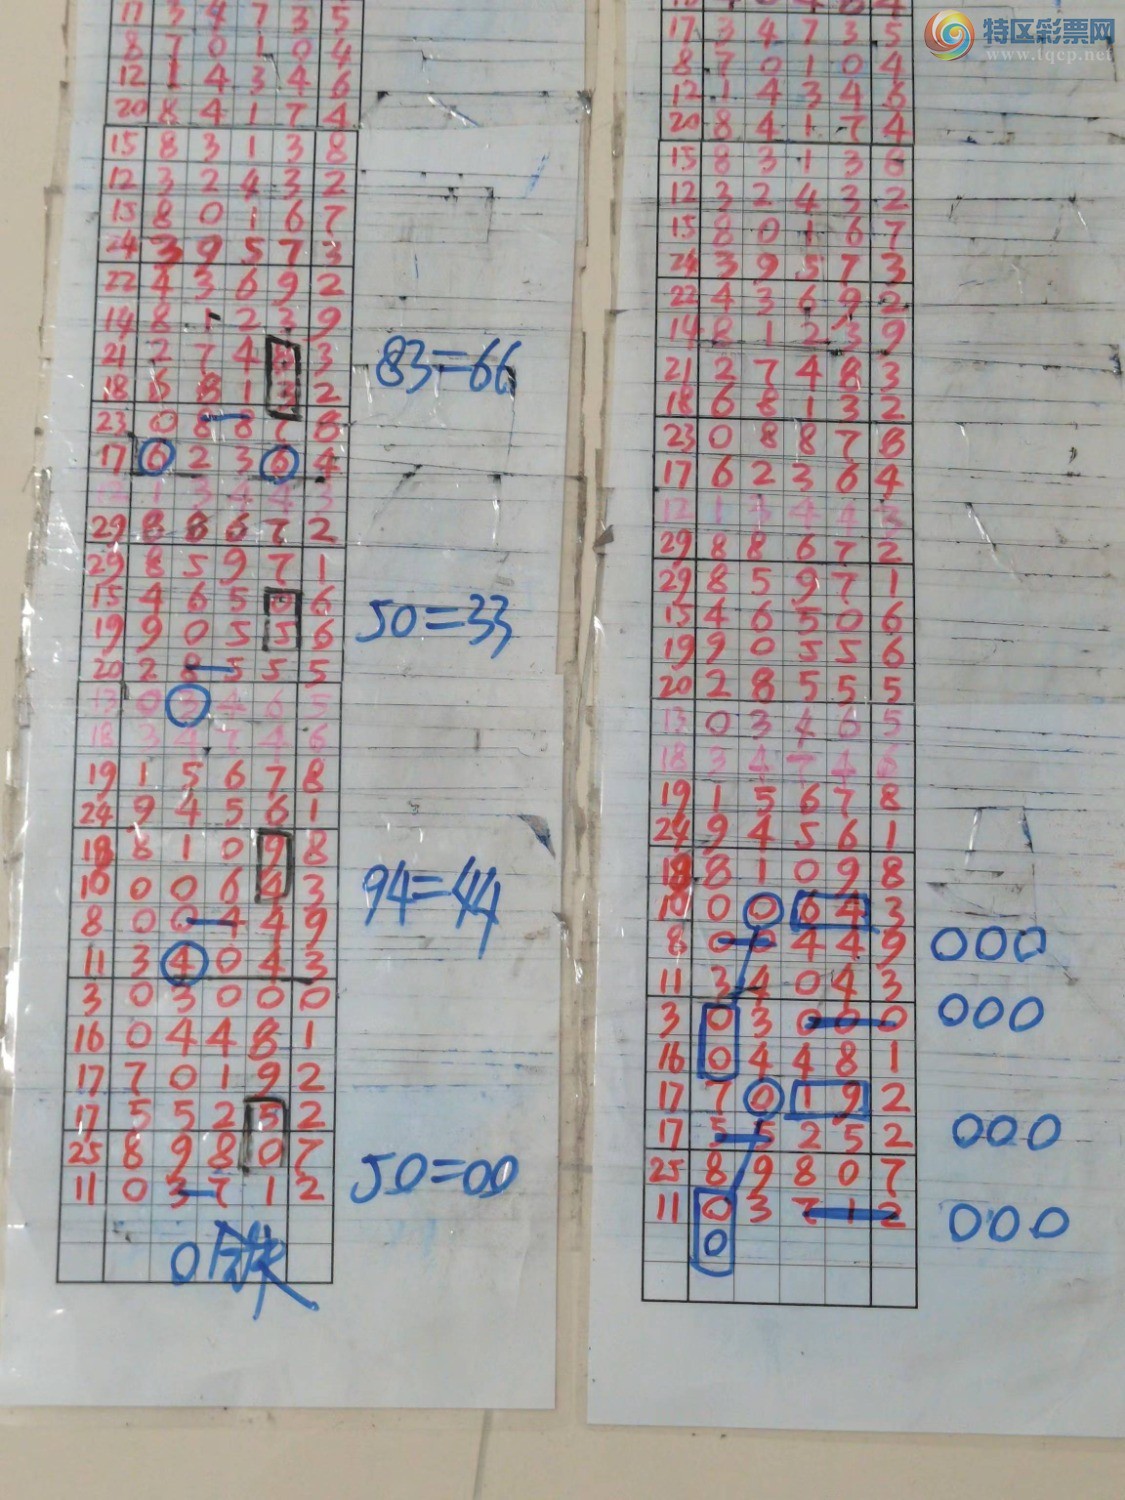 17 3 4 7 3 5
8 7 0 1 0 4
12 1 4 3 4 6
20 8 4 1 7 4
15 8 3 1 3 8
12 3 2 4 3 2
15 8 0 1 6 7
24 3 9 5 7 3
22 4 3 6 9 2
14 8 1 2 3 9
21 2 7 4 8 3
83=66
18 6 8 1 3 2
23 0 8 8 7 8
17 6 2 3 6 4
12 1 3 4 4 3
29 8 8 6 7 2
29 8 5 9 7 1
15 4 6 5 0 6
50=33
19 9 0 5 5 6
20 2 8 5 5 5
13 0 3 4 6 5
18 3 4 7 4 6
19 1 5 6 7 8
24 9 4 5 6 1
18 8 1 0 9 8
10 0 0 6 4 3
94=44
8 0 0 4 4 9
11 3 4 0 4 3
3 0 3 0 0 0
16 0 4 4 8 1
17 7 0 1 9 2
17 5 5 2 5 2
25 8 9 8 0 7
50=00
11 0 3 7 1 2
0
特区彩票网
www.tqcp.net
17 3 4 7 3 5
8 7 0 1 0 4
12 1 4 3 4 6
20 8 4 1 7 4
15 8 3 1 3 8
12 3 2 4 3 2
15 8 0 1 6 7
24 3 9 5 7 3
22 4 3 6 9 2
14 8 1 2 3 9
21 2 7 4 8 3
18 6 8 1 3 2
23 0 8 8 7 8
17 6 2 3 6 4
12 1 3 4 4 3
29 8 8 6 7 2
29 8 5 9 7 1
15 4 6 5 0 6
19 9 0 5 5 6
20 2 8 5 5 5
13 0 3 4 6 5
18 3 4 7 4 6
19 1 5 6 7 8
24 9 4 5 6 1
18 8 1 0 9 8
10 0 0 6 4 3
8 0 0 4 4 9
000
11 3 4 0 4 3
3 0 3 0 0 0
000
16 0 4 4 8 1
17 7 0 1 9 2
17 5 5 2 5 2
000
25 8 9 8 0 7
11 0 3 7 1 2
000
0